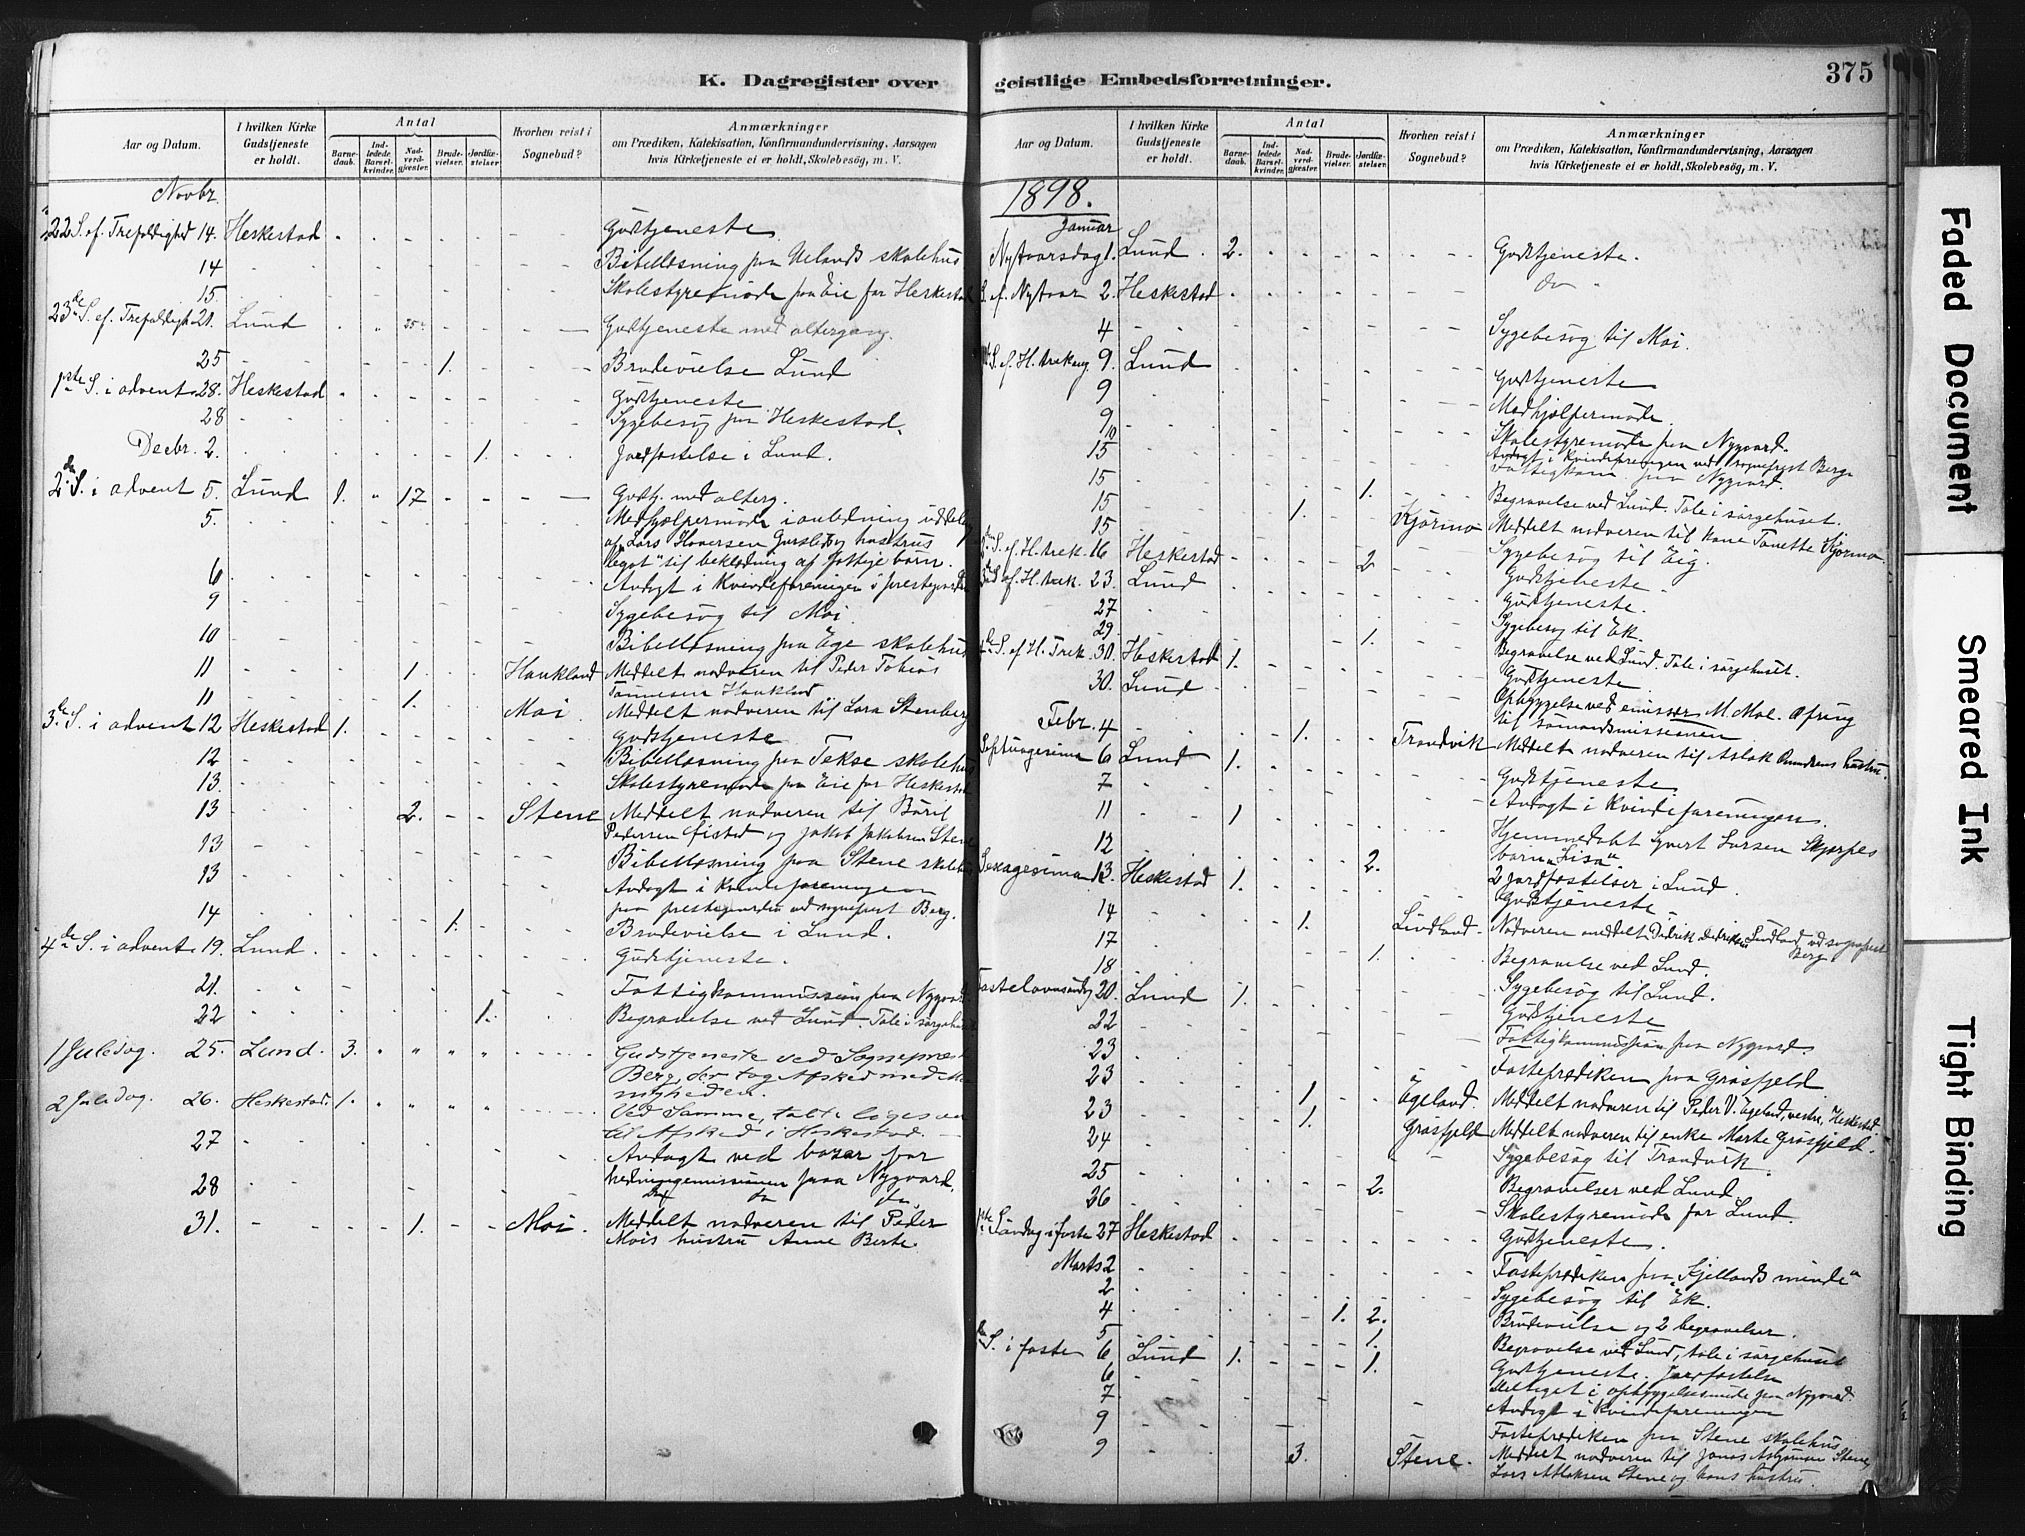 K. Dagregister over
Aar og Datum.
I hvilken Kirke Gudstjeneste er holdt.
Antal
Barnedaab.
Indledede Barselkvinder.
Nadverdgjester.
Brudevielser.
Jordfæstelser.
Hvorhen reist i Sognebud?
Anmærkninger
om Prædiken, Katekisation, Konfirmandundervisning, Aarsagen
hvis Kirketjeneste ei er holdt, Skolebesøg, m. V.
Novbr
22 S. ef. Trefoldighed 14. Heskestad Gudstjeneste
14 Bibellæsning paa Uelands skolehus
15. Skolestyremøde paa Eie for Heskestad
23de S. ef. Trefoldigh 21. Lund 25 Gudstjeneste med altergang.
25 1. Brudevielse Lund
1ste S. i advent 28. Heskestad Gudstjeneste
28 Sygebesøg paa Heskestad.
Decbr. 2. 1. Jordfæstelse i Lund.
2den S. i advent 5. Lund 1. 17 Gudstj. med alterg.
5. Medhjælpermøde i anledning uddeling
af "Lars Haaversen og hustrus
legat" til beklædning af fattige børn.
6 Andagt i Kvindeforeningen i prestegaarden
9 Sygebesøg til Moi.
10 Bibellæsning paa Ege skolehus
11 1. Haukland Meddelt nadveren til Peder Tobias
Tønnesen Haukland
11 1. Moi. Meddelt nadveren til Lara Stenberg
3de S. i advent 12 Heskestad 1. Gudstjeneste
12 Bibellæsning paa Tekse skolehus
13. Skolestyremøde paa Eie for Heskestad
13 2. Stene Meddelt nadveren til Børil
Pedersen Eistad og Jakob Jakobsen Stene
13 Bibellæsning paa Stene skolehus
13 Andagt i Kvindeforeningen
paa prestegaarden ved sogneprest Berg.
14 1. Brudevielse i Lund.
4de S. i advent 19. Lund. Gudstjeneste.
21. Fattigkommission paa Nygaard.
22 1. Begravelse ved Lund. Tale i sørgehuset
1 Juledag. 25. Lund. 3. Gudstjeneste ved Sogneprest
Berg, der tog Afsked med Me-
nigheden.
2 Juledag. 26. Heskestad. 1. Ved Samme, talte ligesaa
til Afsked i Heskestad.
27 Andagt ved bazar for
hedningemissionen paa Nygaard.
28 do do
31. 1. Moi. Meddelt nadveren til Peder
Mois hustru Anne Berte.
geistlige Embedsforretninger.
375
Aar og Datum.
I hvilken Kirke Gudstjeneste er holdt.
Antal
Barnedaab.
Indledede Barselkvinder.
Nadverdgjester.
Brudevielser.
Jordfæstelser.
Hvorhen reist i Sognebud?
Anmærkninger
om Prædiken, Katekisation, Konfirmandundervisning, Aarsagen
hvis Kirketjeneste ei er holdt, Skolebesøg, m. V.
1898.
Januar
Nytaarsdag 1. Lund 2. Gudstjeneste.
S. ef. Nytaar 2. Heskestad do
4 Sygebesøg til Moi.
S. ef. H. trekong. 9. Lund Gudstjeneste
9 Medhjælpermøde
9
10 Skolestyremøde paa Nygaard.
15 Andagt i Kvindeforeningen ved sogneprest Berg
Fattigkom. paa Nygaard.
15 1. Begravelse ved Lund. Tale i sørgehuset.
15 1. Kjørmo Meddelt nadveren til kone Tonette Kjørmo
15 Sygebesøg til Eig.
S. ef. H. trek. 16 Heskestad 2 Gudstjeneste
3de S. ef. H. trek. 23. Lund Gudstjeneste.
27 Sygebesøg til Ek.
29. 1. Begravelse ved Lund. Tale i sørgehuset.
S. ef H. Trek. 30. Heskestad 1. Gudstjeneste
30. Lund Opbyggelse ved emissær M. Moe. Ofring
til sømandsmissionen
Febr. 4 1. Trondvik Meddelt nadveren til Aslak hustru.
Septuagesima 6 Lund 1. Gudstjeneste
7 Andagt i Kvindeforeningen.
11 1 Hjemmedøbt Syvert Larsen Skjerpes
barn "Lisa".
12 2. 2 jordfæstelser i Lund.
Sexagesima 13. Heskestad 1. Gudstjeneste
14 1. Lindland. Nadveren meddelt Didrik Didriksen Lindland ved sogneprest
Berg
17 1. Begravelse ved Lund.
18 Sygebesøg til Lund.
Fastelavnssøndag 20. Lund 1. Gudstjeneste
22 Fattigkommission paa Nygaard.
23 Fasteprædiken paa Grøsfjeld
23 1 Egeland. Meddelt nadveren til Peder V. Egeland, vestre, Heskestad.
23 1. Grøsfjeld Meddelt nadveren til enke Marte Grøsfjeld.
24 Sygebesøg til Trondvik.
25 2. Begravelser ved Lund.
26 Skolestyremøde for Lund.
1ste Søndag i faste 27 Heskestad Gudstjeneste.
Marts 2 Fasteprædiken paa "Kjellands minde"
2 Sygebesøg til Ek.
4 1. 2. Brudevielse og 2 begravelser.
5 1. Begravelse ved Lund, tale i sørgehuset
S. i faste 6 Lund 1. 1. Gudstjeneste. Jordfæstelse
6 Deltaget i opbyggelsesmøde paa Nygaard.
7 Andagt i Kvindeforeningen
9 Fasteprædiken paa Stene skolehus
9 3. Stene. Meddelt nadveren til Jonas Asbjørnsen Stene,
Lars Atlaksen Stene og hans hustru.
Faded Document
Smeared Ink
Tight Binding